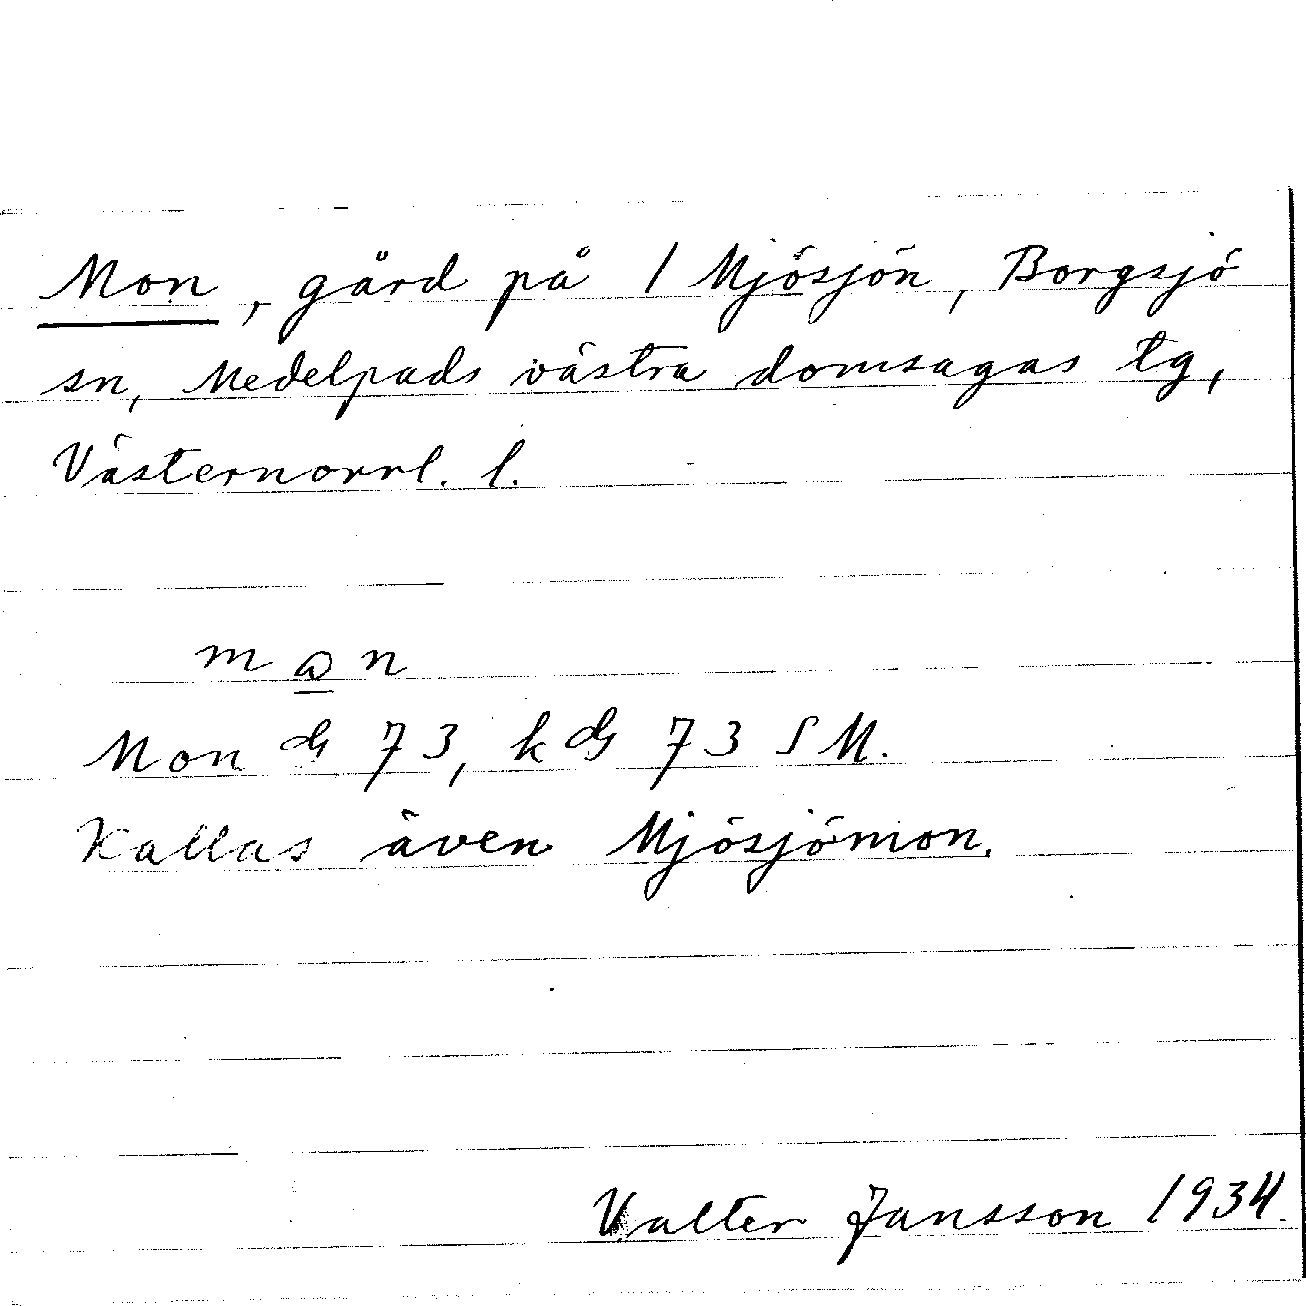 Mon, gård på 1 Mjösjön, Borgsjö
sn, Medelpads västra domsagas tg,
Västernorrl. l.
Mon 73, k 73 S M.
Kallas även Mjösjömon.
Valter Jansson 1934.